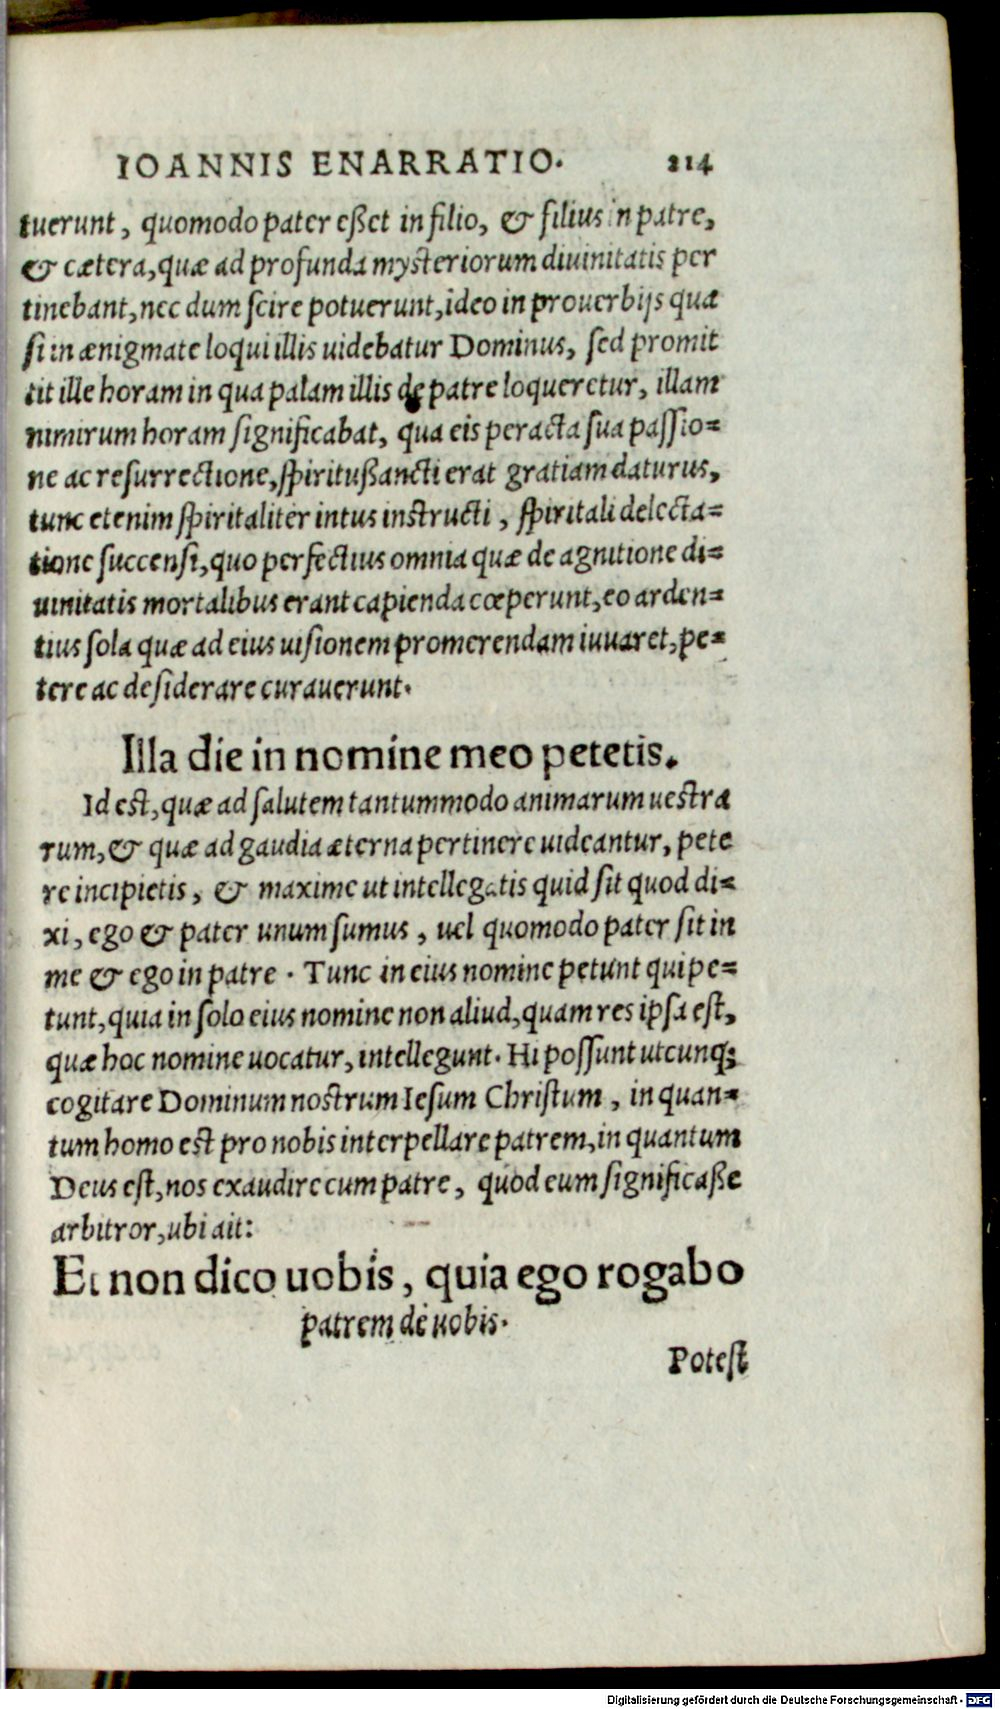 IOANNIS ENARRATIO. 214
tuerunt, quomodo pater eßet in filio, & filius in patre,
& cætera, quæ ad profunda mysteriorum diuinitatis per
tinebant, nec dum scire potuerunt, ideo in prouerbijs qua
si in ænigmate loqui illis uidebatur Dominus, sed promit
tit ille horam in qua palam illis de patre loqueretur, illam
nimirum horam significabat, qua eis peracta sua passio=
ne ac resurrectione, spiritußancti erat gratiam daturus,
tunc etenim spiritaliter intus instructi, spiritali delecta=
tione succensi, quo perfectius omnia quæ de agnitione di=
uinitatis mortalibus erant capienda cœperunt, eo arden=
tius sola quæ ad eius uisionem promerendam iuuaret, pe=
tere ac desiderare curauerunt.
Illa die in nomine meo petetis.
Id est, quæ ad salutem tantummodo animarum uestra
rum, & quæ ad gaudia æterna pertinere uideantur, pete
re incipietis, & maxime ut intellegatis quid sit quod di=
xi, ego & pater unum sumus, uel quomodo pater sit in
me & ego in patre. Tunc in eius nomine petunt qui pe=
tunt, quia in solo eius nomine non aliud, quam res ipsa est,
quæ hoc nomine uocatur, intellegunt. Hi possunt utcunq;
cogitare Dominum nostrum Iesum Christum, in quan=
tum homo est pro nobis interpellare patrem, in quantum
Deus est, nos exaudire cum patre, quod eum significaße
arbitror, ubi ait:
Et non dico uobis, quia ego rogabo
patrem de uobis.
Potest
Digitalisierung gefördert durch die Deutsche Forschungsgemeinschaft - DFG